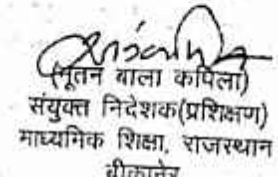 (नूतन बाला कपिला)
संयुक्त निदेशक(प्रशिक्षण)
माध्यमिक शिक्षा, राजस्थान
बीकानेर